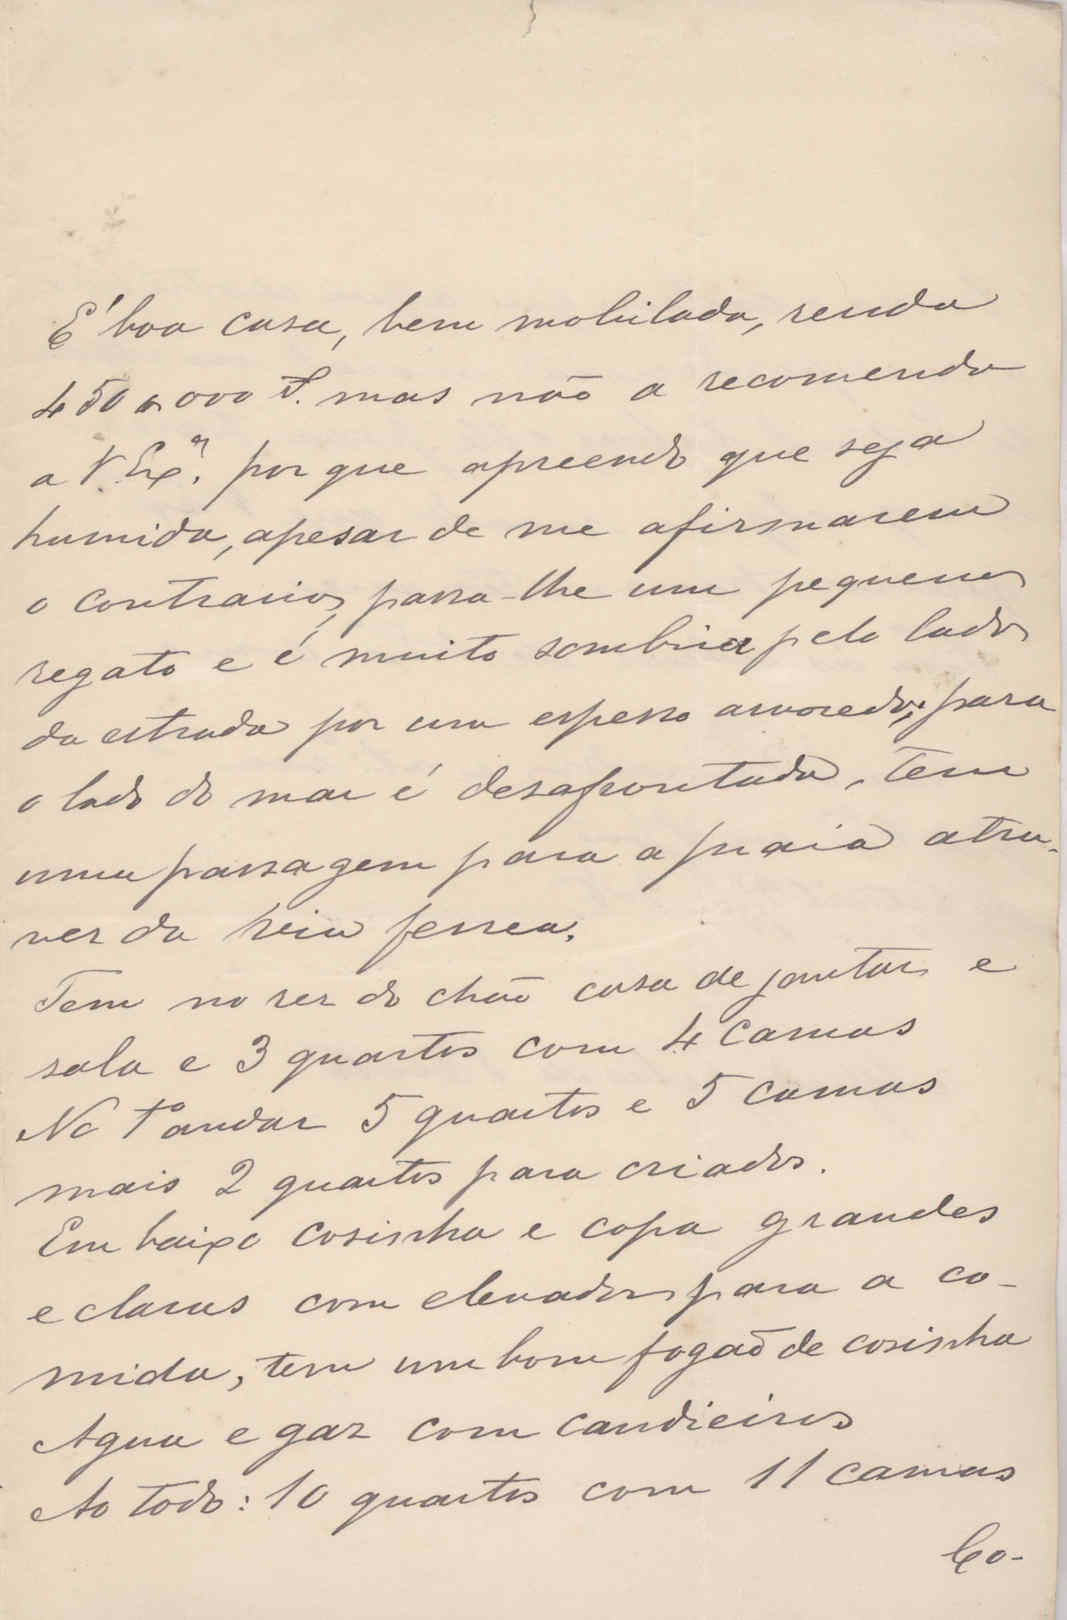 É boa casa, bem mobilada, renda
450$000 rs. mas não a recomendo
a V. Exª. por que apreendo que seja
humida, apesar de me afirmarem
o contrario, passa-lhe um pequeno
regato e é muito sombria pelo lado
da estrada por um espesso arvoredo; para
o lado do mar é desafrontada, Tem
uma passagem para a praia atra-
vez da heia ferrea.
Tem no rez do chão casa de jantar e
sala e 3 quartos com 4 camas
No 1º andar 5 quartos e 5 camas
mais 2 quartos para criados.
Em baixo cosinha e copa grandes
e claras com elevador para a co-
mida, tem um bom fogão de cosinha
Agua e gaz com candieiros
Ao todo: 10 quartos com 11 camas
Co-